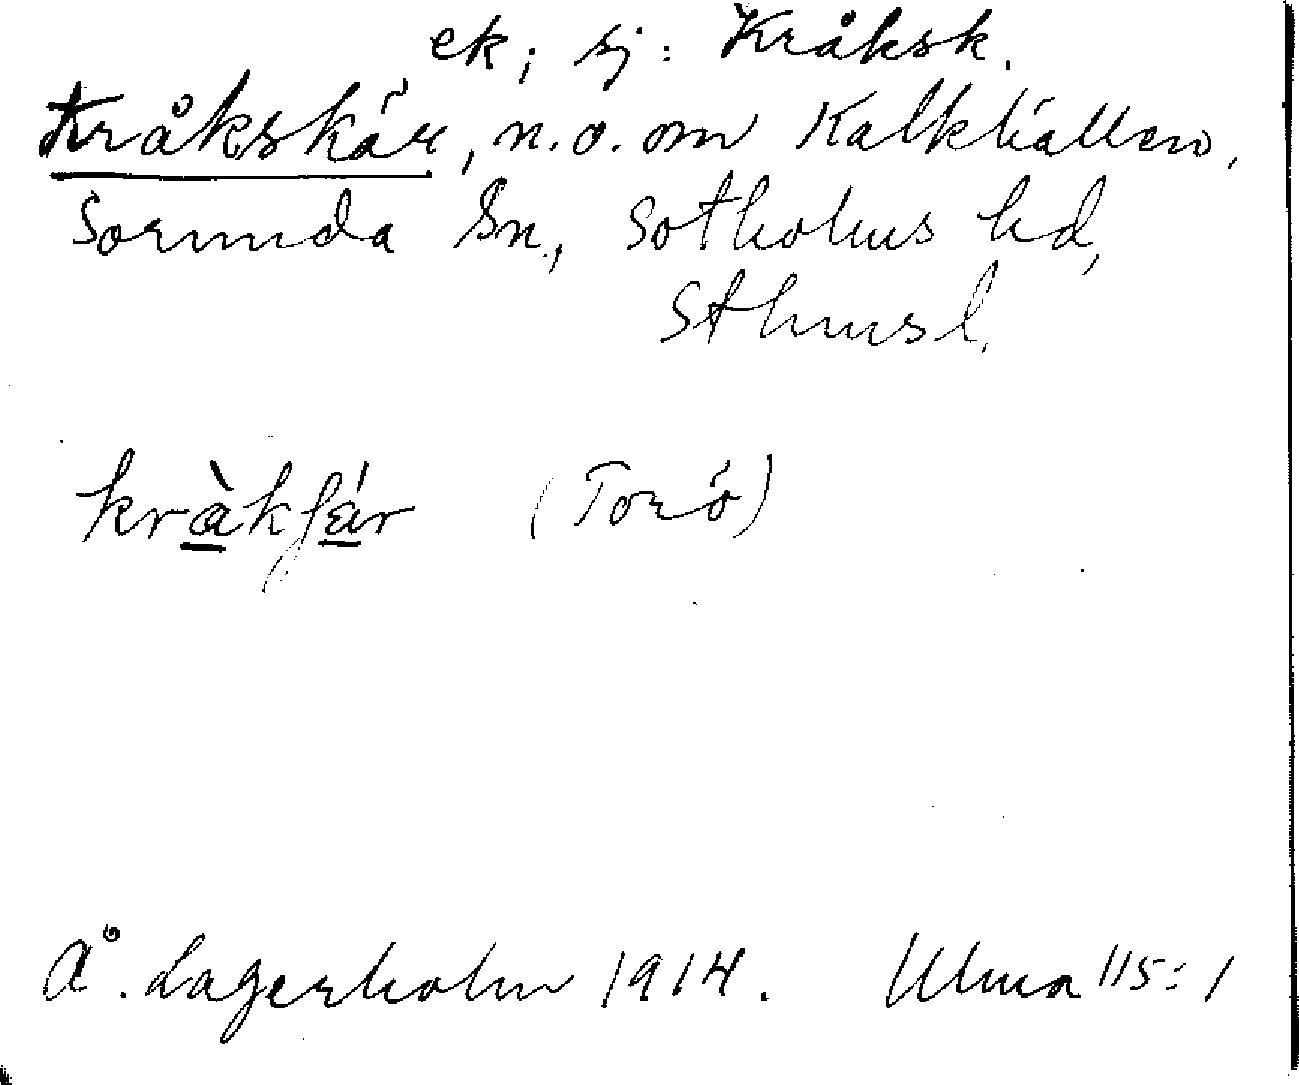 ek; sj: Kråksk.
Kråkskär, n.o. om Kalkhällen,
Sorunda Sn., Sotholms hd,
Sthmsl.
kràkʃär (Torö)
Å. Lagerholm 1914. Ulma 115:1